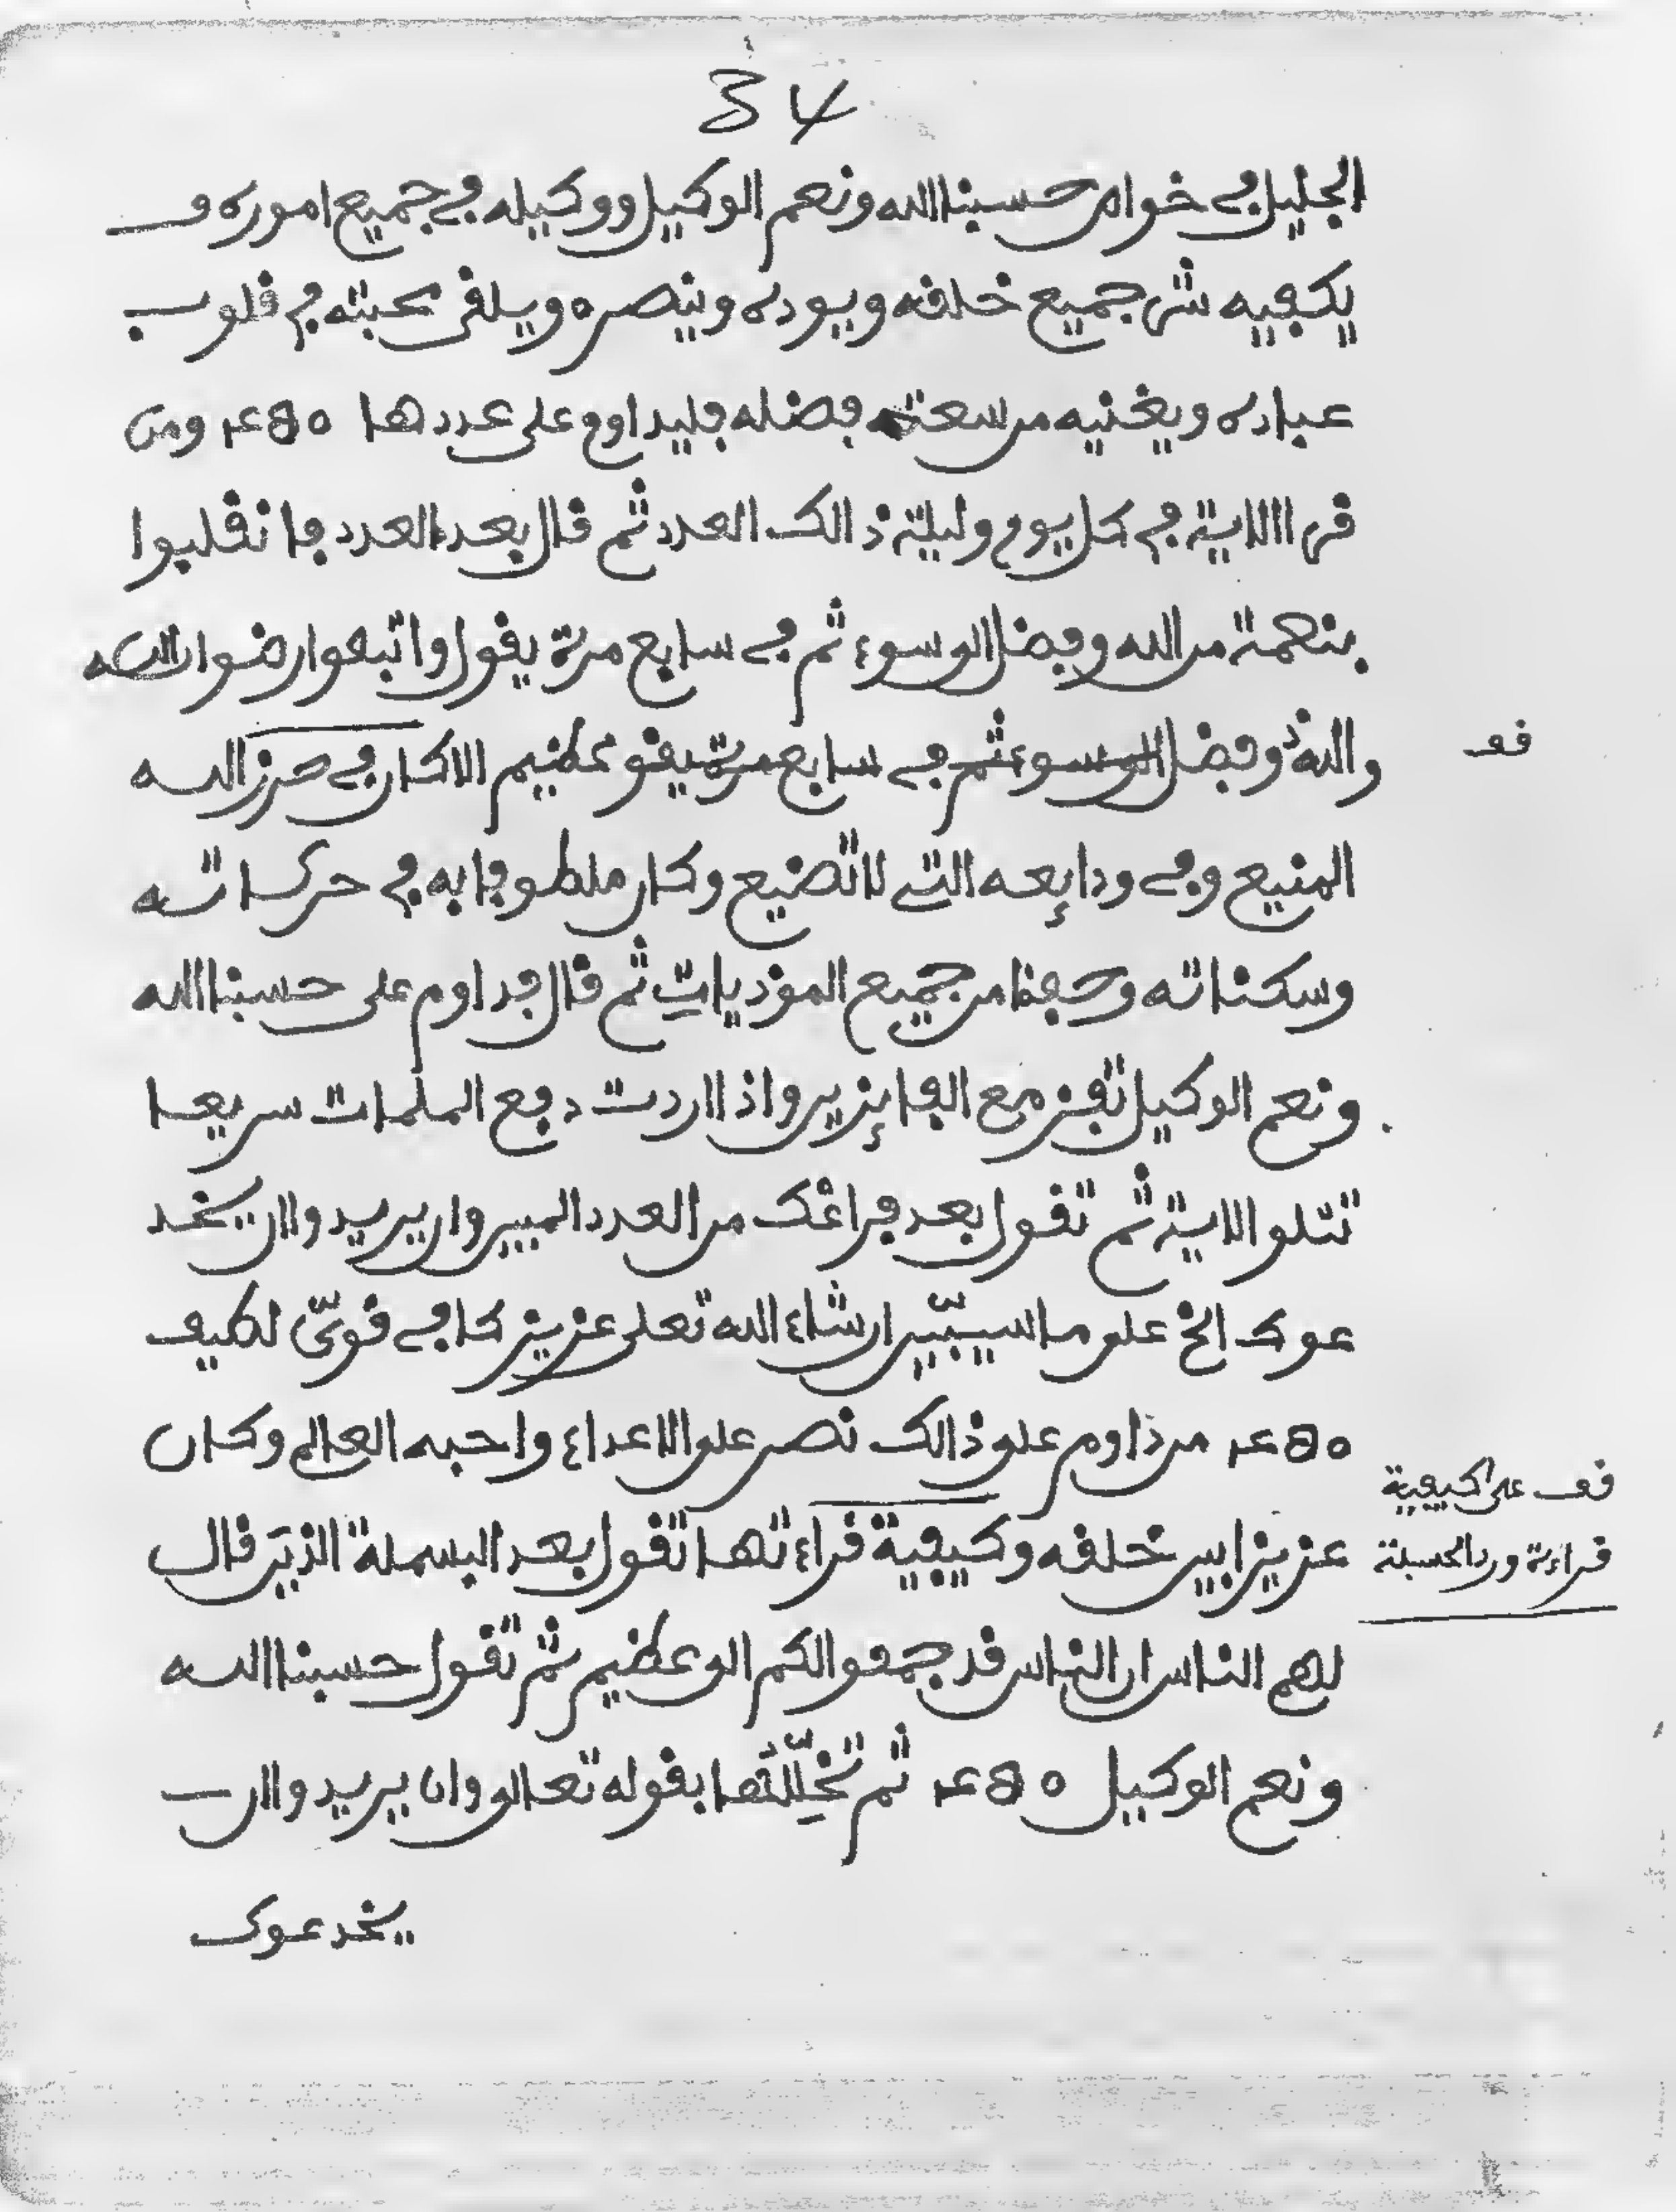 الجليل في خواص حسبنا الله ونعم الوكيل ووكيله في جميع اموره و
يكفيه شر جميع خلقه ويوده وينصره ويلقى محبته في قلوب
عباده ويغنيه من سعة فضله فليداوم على عددها ومن
قرا الاية في كل يوم وليلة ذالك العدد ثم قال بعد العدد فانقلبوا
بنعمة من الله وفضل الى سوء ثم في سابع مرة يقول واتبعوا رضوان الله
والله ذو فضل الى سوء ثم في سابع مرة يقو عظيم الا كان في حرز الله
قف
المنيع وفي ودايعه التي لا تضيع وكان ملطوفا به في حركاته
وسكناته وحفظا من جميع الموذيات ثم قال فداوم على حسبنا الله
ونعم الوكيل تفز مع الفايزين واذا اردت دفع الملمات سريعا
تتلو الاية ثم تقول بعد فراغك من العدد المبين وان يريدوا ان يخد
عوك الخ على ما سيبين ان شاء الله تعلى عزيز كافي قوي لطيف
من داوم على ذالك نصر على الاعداء واحبه العالم وكان
عزيزا بين خلقه وكيفية قراءتها تقول بعد البسملة الذين قال
قف على كيفية
قراءة ورد الحسبلة
لهم الناس ان الناس قد جمعوا لكم الى عظيم ثم تقول حسبنا الله
ونعم الوكيل ثم بقوله تعالى وان يريدوا ان
يخدعوك